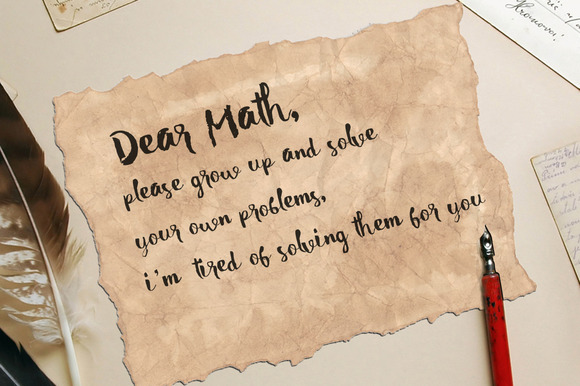 Dear Math,
please grow up and solve
your own problems,
i'm tired of solving them for you
Hronovoi.